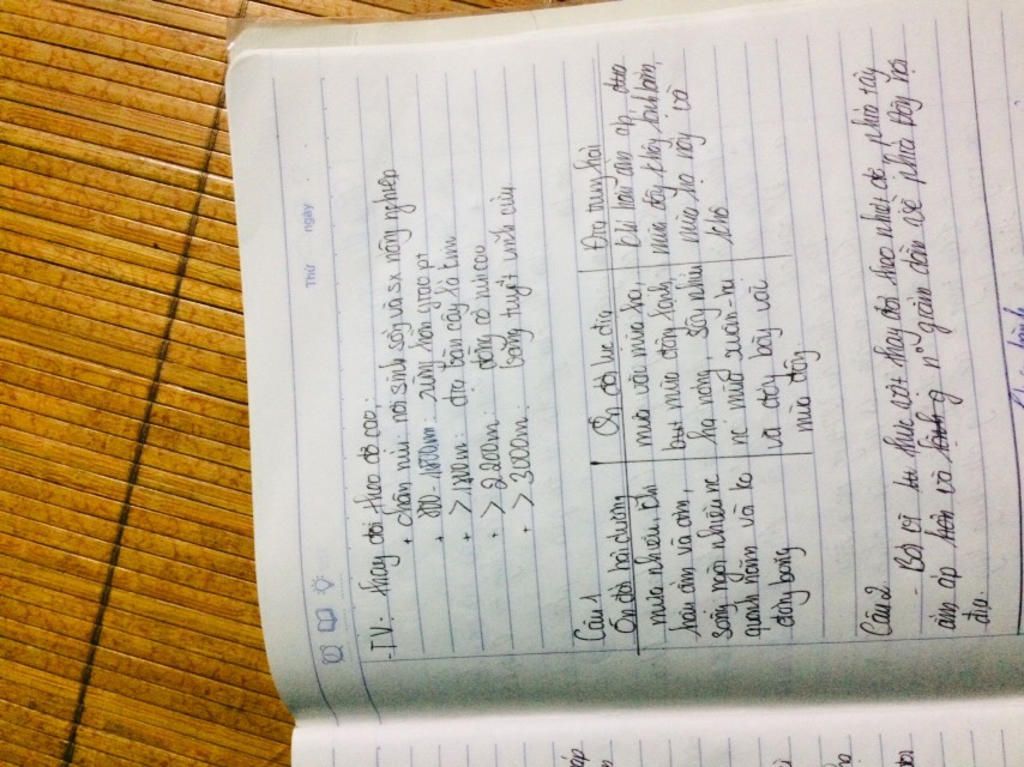 Thứ ngày
- TV: thay đổi theo độ cao:
+ chân núi: nơi sinh sống và sx nông nghiệp
+ 800 - 1800m: rừng hỗn giao pt
+ > 1800m: địa bàn cây lá kim
+ > 2200m: đồng cỏ núi cao
+ > 3000m: băng tuyết vĩnh cửu
Câu 1
Ôn đới hải dương
mưa nhiều, khí
hậu ẩm và ấm,
sông ngòi nhiều nc
quanh năm và ko
đóng băng
Ôn đới lục địa
mưa vào mùa hạ,
mùa đông lạnh,
hạ nóng, sông nhiều
nc mùa xuân - hạ
và đóng băng vào
mùa đông.
Địa trung hải
khí hậu ấm áp,
mùa đông không lạnh lắm,
mùa hạ nóng và
khô
Câu 2
- Bởi vì thực vật thay đổi theo nhiệt độ, phía tây
ấm áp và n° giảm dần về phía Đông nội
địa.